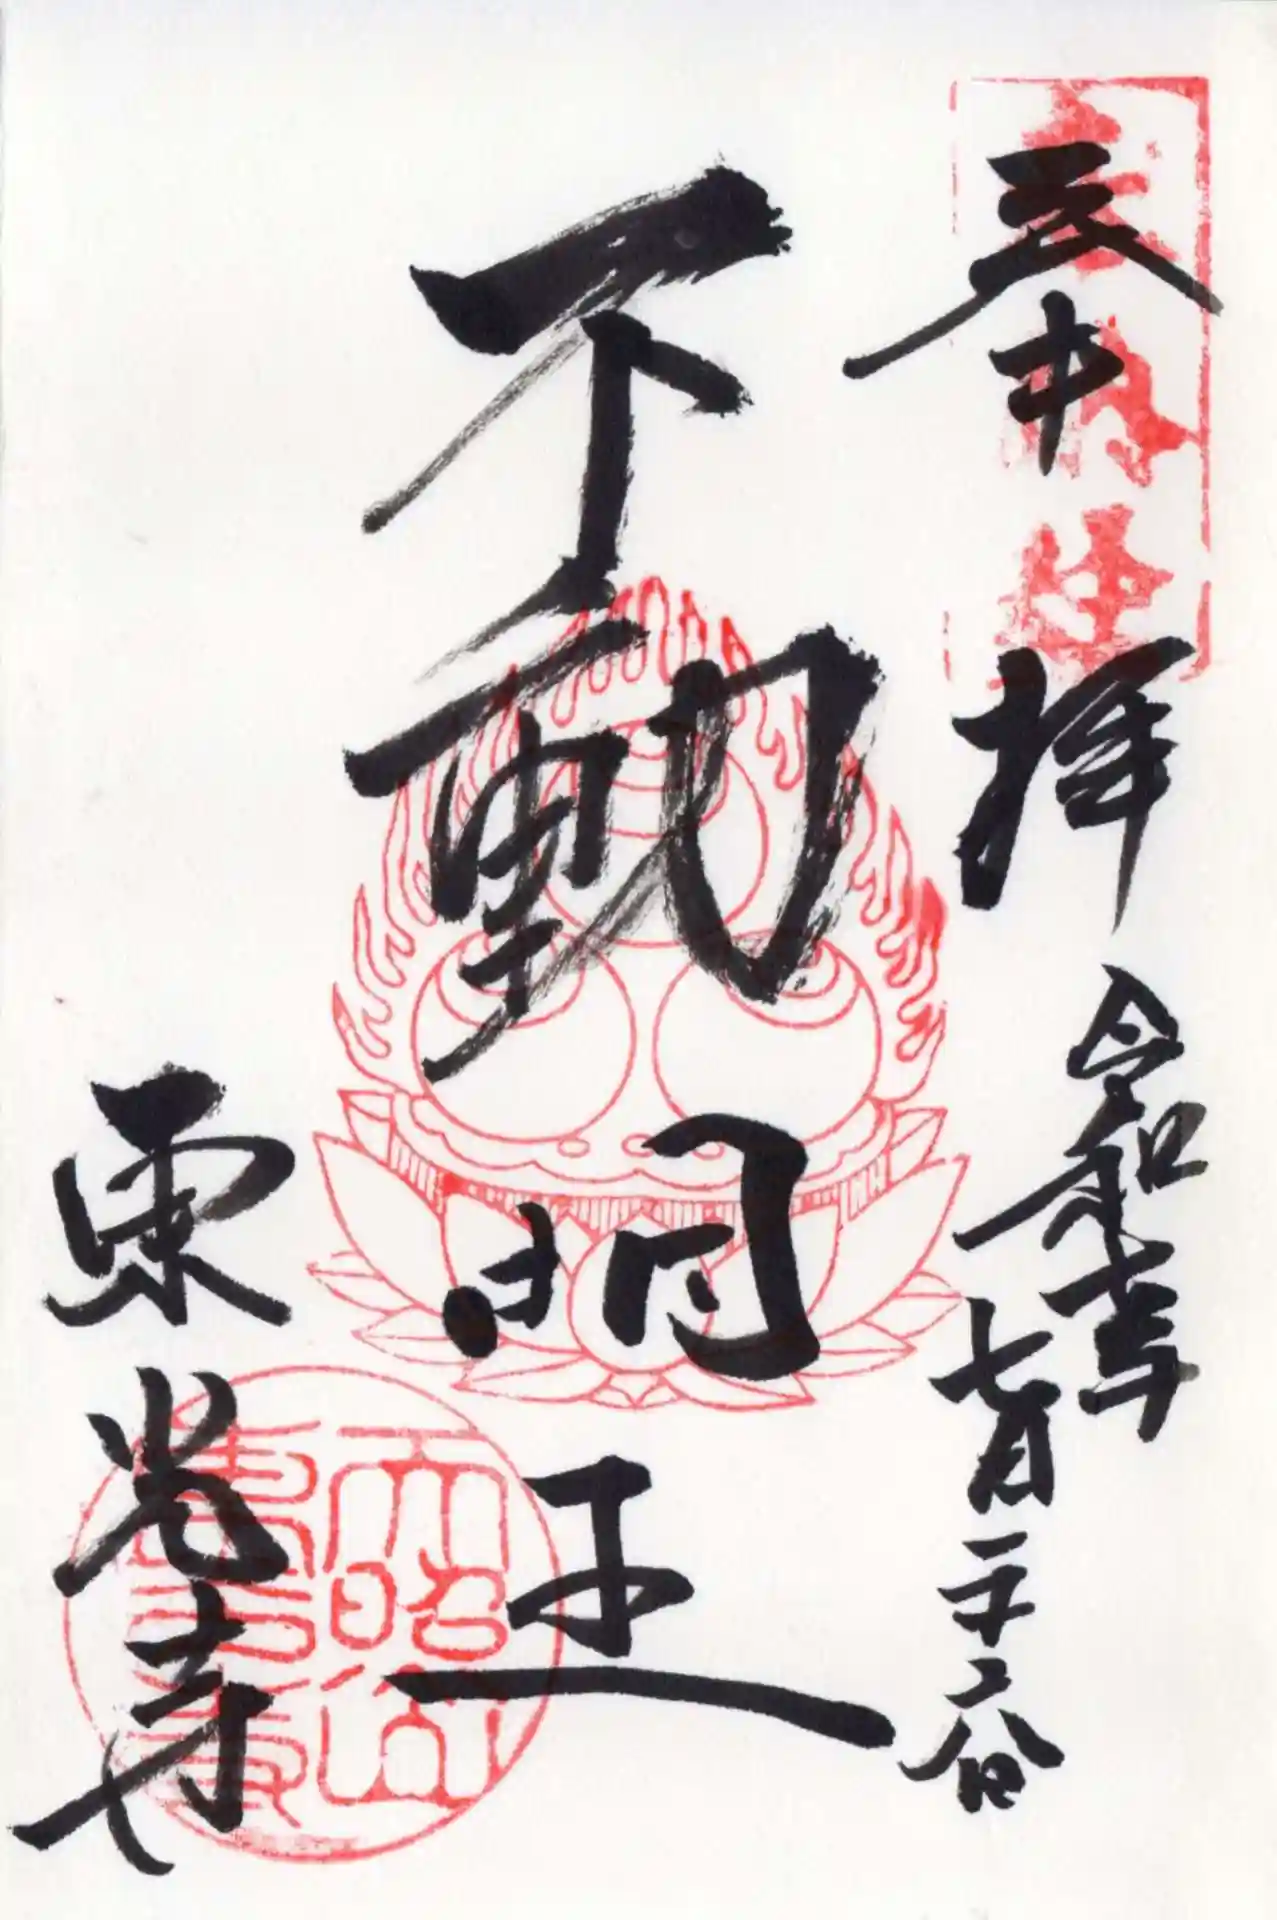 奉納経
奉拝
令和
七月二十六日
不動明王
東光寺